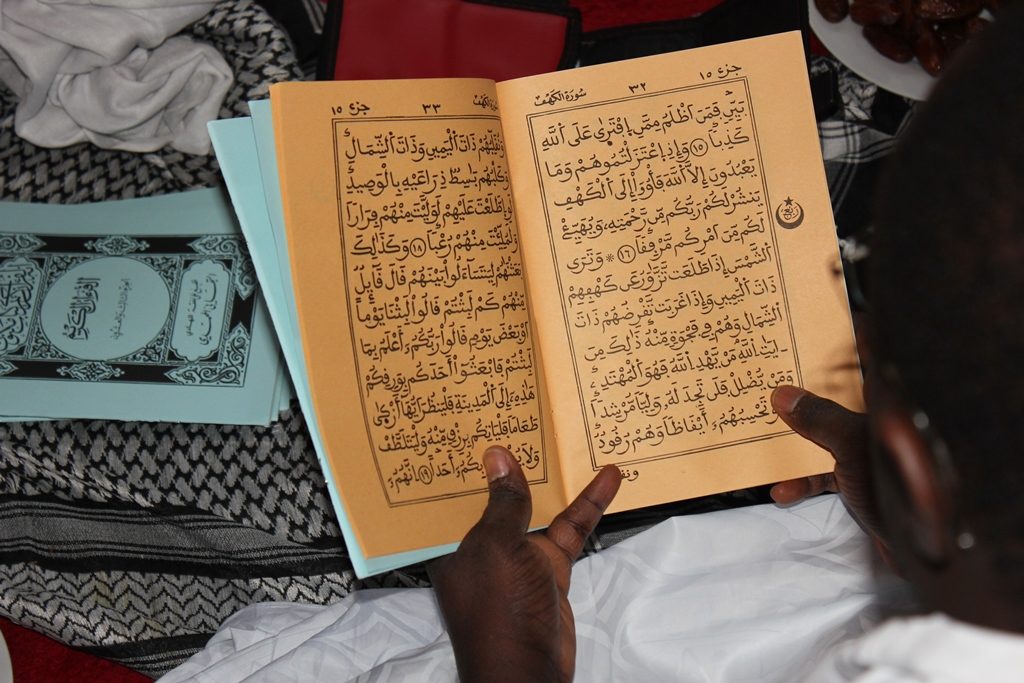 جزء ١٥
٣٢
سورة الكهف
بَيِّنٍ فَمَنْ أَظْلَمُ مِمَّنِ اِفْتَرٜي عَلَى أَللَّهِ
كَذِباً ١٥ وَإِذِ اِعْتَزَلْتُمُوهُمْ وَمَا
يَعْبُدُونَ إِلاَّ أَللَّهَ فَأْوُۥاْ إِلَى أَلْكَهْفِ
يَنشُرْ لَكُمْ رَبُّكُم مِّن رَّحْمَتِهِۦ وَيُهَيِّئْ
لَكُم مِّنْ أَمْرِكُم مَّرْفِقاً ١٦ * وَتَرَى
أَلشَّمْسَ إِذَا طَلَعَت تَّزَّٰوَرُ عَن كَهْفِهِمْ
ذَاتَ أَلْيَمِينِ وَإِذَا غَرَبَت تَّقْرِضُهُمْ ذَاتَ
أَلشِّمَالِ وَهُمْ فِي فَجْوَةٍ مِّنْهُ ذَٰلِكَ مِنَ
اٰيَٰتِ أِللَّهِ مَنْ يَّهْدِ أِللَّهُ فَهُوَ أَلْمُهْتَدِ
وَمَنْ يُّضْلِلْ فَلَن تَجِدَ لَهُۥ وَلِيّاً مُّرْشِداً
وَتَحْسِبُهُمُۥ أَيْقَاظاً وَهُمْ رُقُودٌ
جزء ١٥
٣٣
سورة الكهف
وَنُقَلِّبُهُمْ ذَاتَ أَلْيَمِينِ وَذَاتَ أَلشِّمَالِ
وَكَلْبُهُم بَٰسِطٌ ذِرَاعَيْهِ بِالْوَصِيدِ
لَوِ اِطَّلَعْتَ عَلَيْهِمْ لَوَلَّيْتَ مِنْهُمْ فِرَاراً
وَلَمُلِّئْتَ مِنْهُمْ رُعْباً ١٨ وَكَذَٰلِكَ
بَعَثْنَٰهُمْ لِيَتَسَآءَلُواْ بَيْنَهُمْ قَالَ قَآئِلٌ
مِّنْهُمْ كَمْ لَبِثْتُمْ قَالُواْ لَبِثْنَا يَوْماً
أَوْ بَعْضَ يَوْمٍ قَالُواْ رَبُّكُمُۥ أَعْلَمُ بِمَا
لَبِثْتُمْ فَابْعَثُواْ أَحَدَكُم بِوَرِقِكُمْ
هَٰذِهِۦ إِلَى أَلْمَدِينَةِ فَلْيَنظُرَ اَيُّهَا أَزْكٜىٰ
طَعَاماً فَلْيَأْتِكُم بِرِزْقٍ مِّنْهُ وَلْيَتَلَطَّفْ
وَلاَ بِكُمُۥ أَحَداً ١٩ اِنَّهُمُۥ